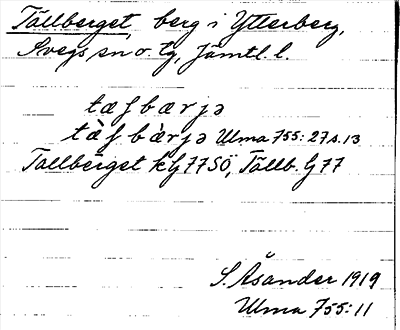 Tällberget, berg i Ytterberg,
Svegs sn o. tg, Jämtl. l.
tæɟbærjə
tæ̀ɟbæ̀rjə Ulma 755:27 s. 13
Tallberget kG77SÖ, Tällb. G77
S. Åsander 1919
Ulma 755:11